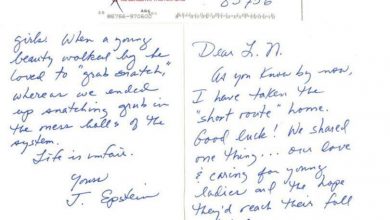 85756
girls. When a young
beauty walked by he
loved to "grab snatch,"
whereas we ended
up snatching grub in
the mess halls of the
system.
Life is unfair.
Yours
J. Epstein
Dear L. N.
As you know by now,
I have taken the
"short route" home.
Good luck! We shared
one thing... our love
& caring for young
ladies and the hope
they'd reach their full